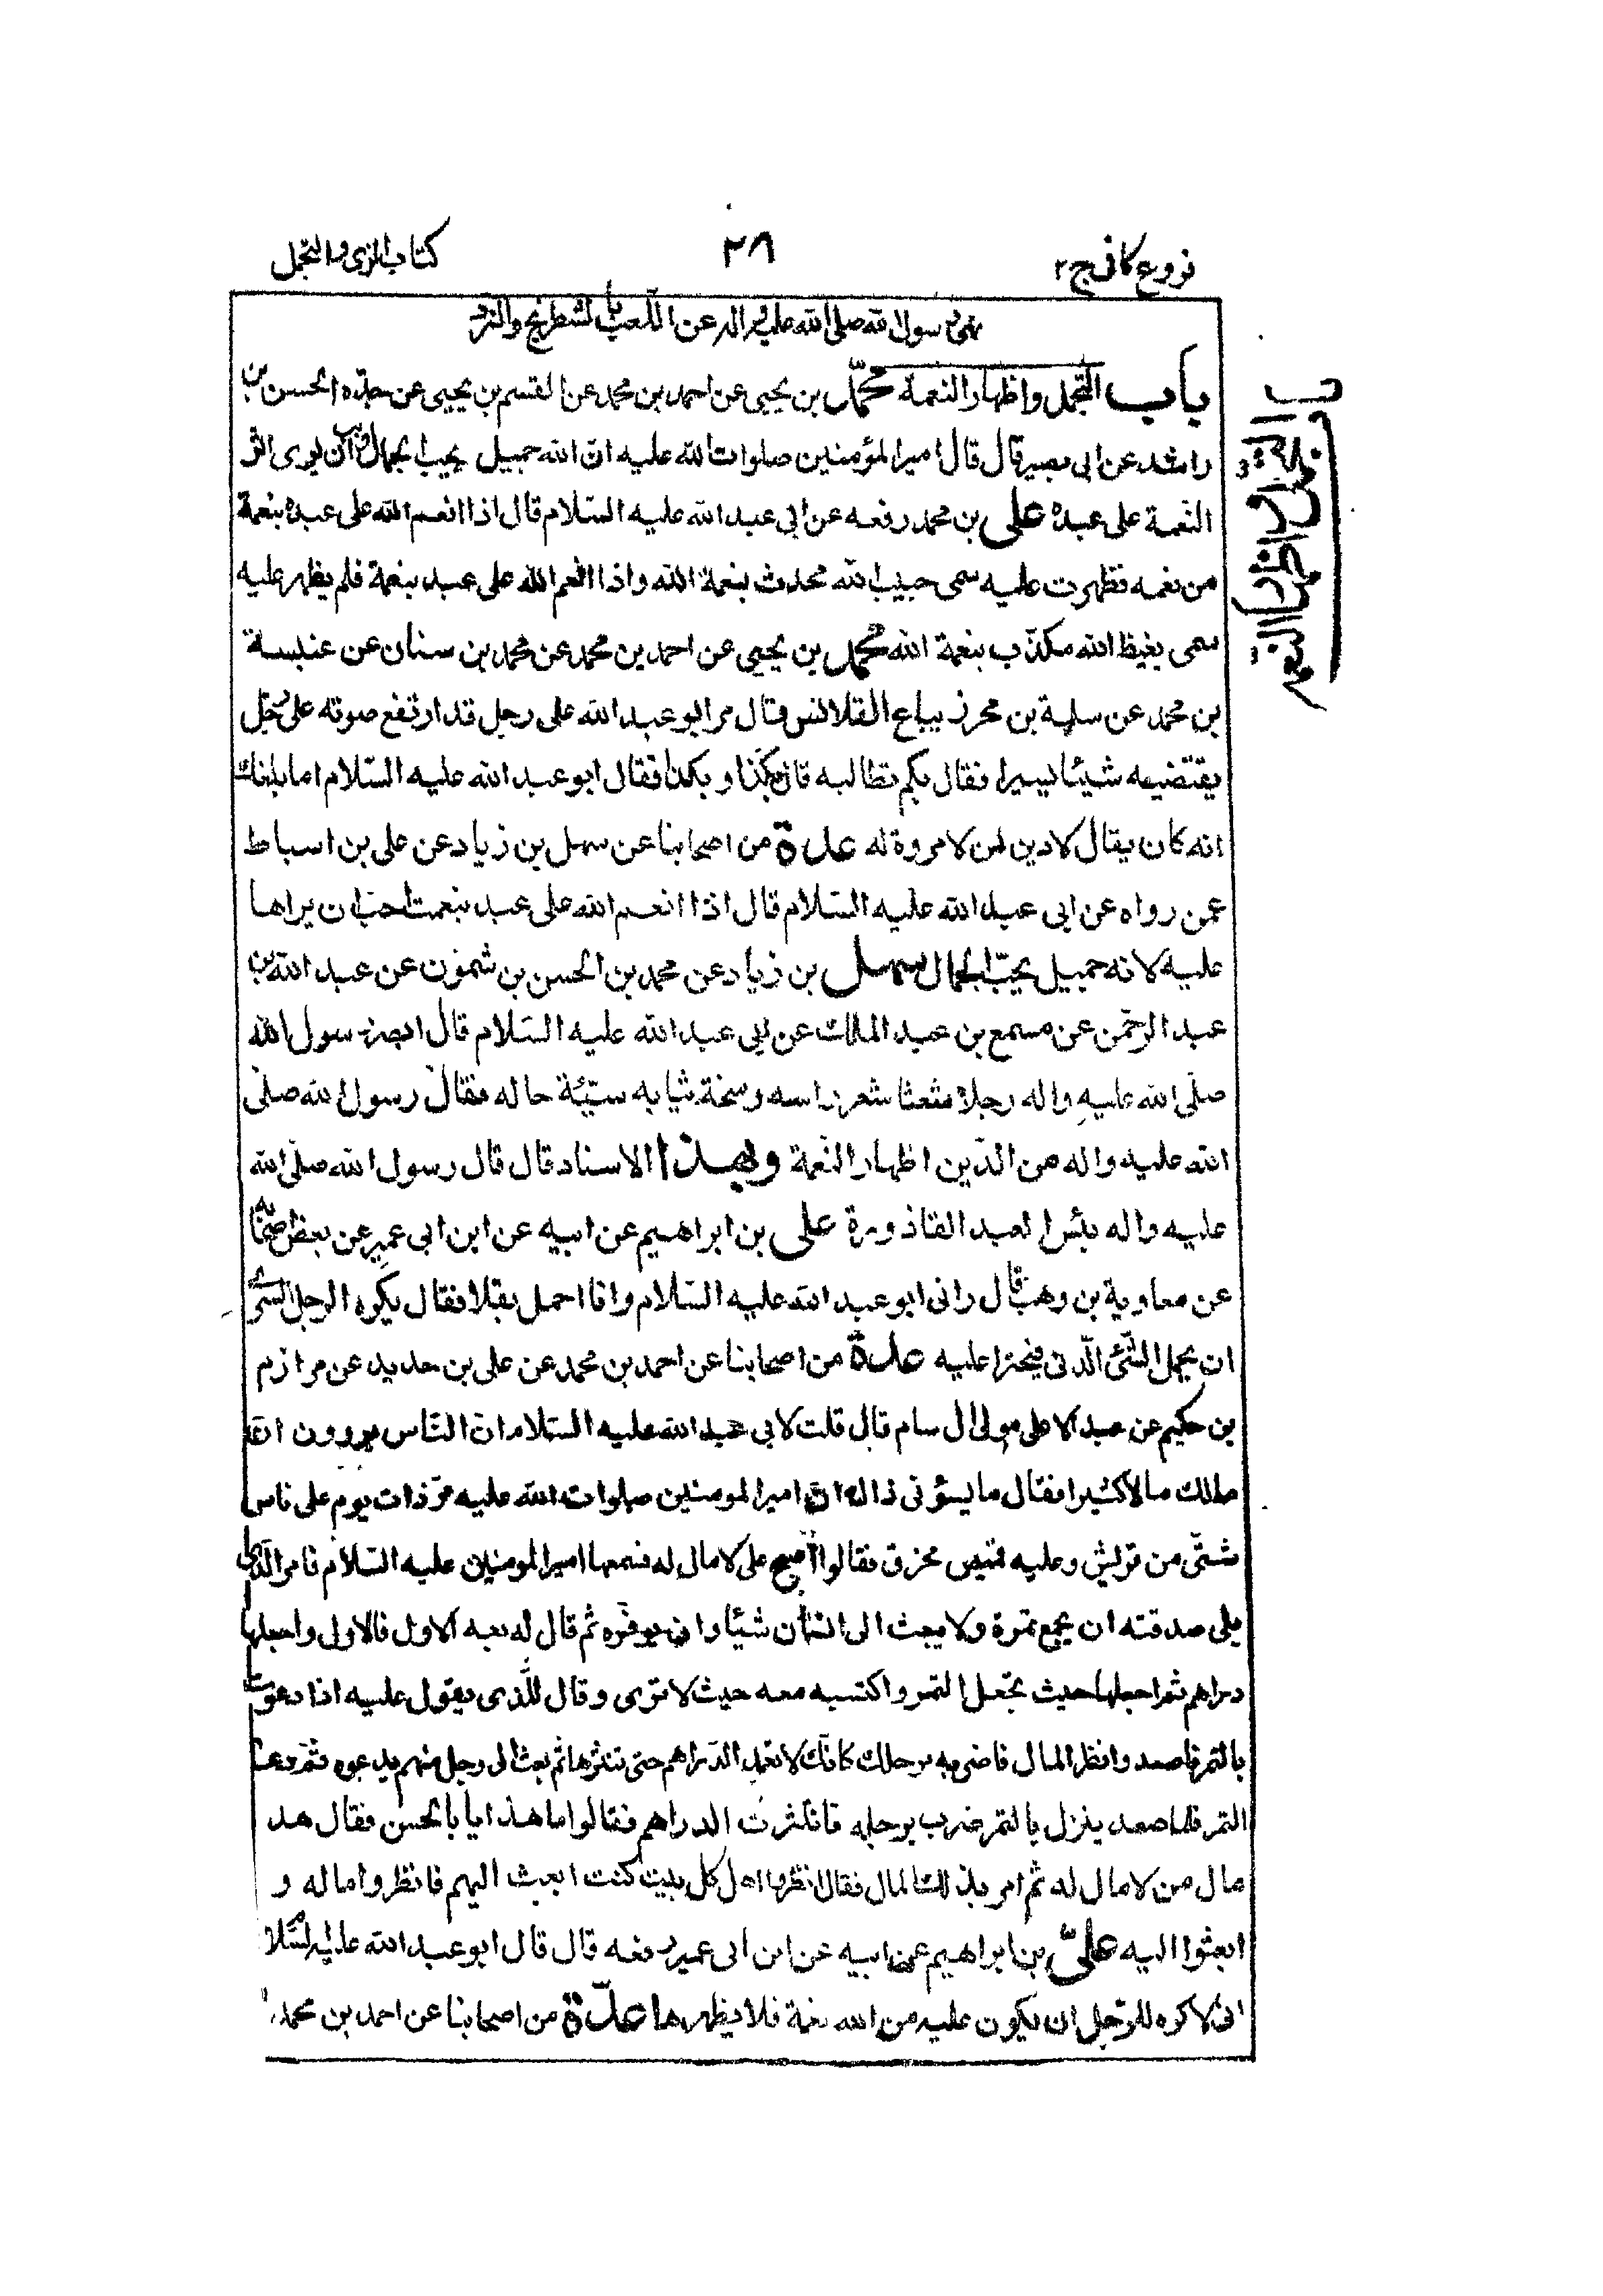 فروع كافى ج ٢
٢٨
كتاب الزى والتجمل
نهى رسول الله صلى الله عليه واله عن اللعب بالشطرنج والنرد
باب التجمل واظهار النعمة محمّد بن يحيى عن احمد بن محمد عن القسم بن يحيى عن جدّه الحسن بن
راشد عن ابى بصير قال قال امير المؤمنين صلوات الله عليه ان الله جميل يحب الجمال ويحب ان يرى اثر
النعمة على عبده على بن محمد رفعه عن ابى عبد الله عليه السّلام قال اذا انعم الله على عبده بنعمة
من نعمه فظهرت عليه سمى حبيب الله محدث بنعمة الله واذا انعم الله على عبد بنعمة فلم يظهر عليه
سمى بغيظ الله مكذّب بنعمة الله محمّد بن يحيى عن احمد بن محمد عن محمد بن سنان عن عنبسة
بن محمد عن سلمة بن محرز بياع القلانس قال مر ابو عبد الله على رجل قد ارتفع صوته على رجل
يقتضيه شيئا يسيرا فقال بكم تطالبه قال بكذا وبكذا فقال ابو عبد الله عليه السّلام اما بلغك
انه كان يقال لا دين لمن لا مروة له عدة من اصحابنا عن سهل بن زياد عن على بن اسباط
عمن رواه عن ابى عبد الله عليه السّلام قال اذا انعم الله على عبد بنعمت احب ان يراها
عليه لانه جميل يحبّ الجمال سهل بن زياد عن محمد بن الحسن بن شمون عن عبد الله بن
عبد الرحمن عن مسمع بن عبد الملك عن ابى عبد الله عليه السّلام قال ابصر رسول الله
صلّى الله عليه واله رجلا شعثا شعر راسه وسخة ثيابه سيّئة حاله فقال رسول الله صلّى
الله عليه واله من الدّين اظهار النّعمة وبهذا الاسناد قال قال رسول الله صلّى الله
عليه واله بئس العبد القاذورة على بن ابراهيم عن ابيه عن ابن ابى عمير عن بعض اصحابه
عن معاوية بن وهب قال رانى ابو عبد الله عليه السّلام وانا احمل بقلا فقال يكره الرجل السرى
ان يحمل الشّئ الّدنى فيجترا عليه عدة من اصحابنا عن احمد بن محمد عن على بن حديد عن مرازم
بن حكيم عن عبد الاعلى مولى ال سام قال قلت لابى عبد الله عليه السّلام انّ النّاس يروون انّ
لك مالا كثيرا فقال ما يسؤنى ذاك ان امير المومنين صلوات الله عليه مرّ ذات يوم على ناس
شتّى من قريش وعليه قميص مخرق فقالوا اصبح على لا مال له فسمعها امير المومنين عليه السّلام فامر الّذى
يلى صدقته ان يجمع تمره ولا يبعث الى انسان شيئا وان يوفّره ثم قال له بعه الاول فالاول واجعلها
دراهم ثم اجعلها حيث تجعل التمر واكتسبه معه حيث لا ترى وقال للّذى يقول عليه اذا دعوت
بالتمر فاصعد وانظر المال فاضربه برجلك كانّك لا تعمد الدّراهم حتى تنثرها ثم بعث الى رجل منهم يدعوه ثم دعا
التمر فلما صعد ينزل بالتمر ضرب برجله فانتثرت الدراهم فقالوا ما هذا يا با الحسن فقال هذ
مال من لا مال له ثم امر بذلك المال فقال انظروا اهل كل بيت كنت ابعث اليهم فانظروا ماله و
ابعثوا اليه علىّ بن ابراهيم عن ابيه عن ابن ابى عمير رفعه قال قال ابو عبد الله عليه السّلام
انى لاكره للرّجل ان يكون عليه من الله نعمة فلا يظهرها عدّة من اصحابنا عن احمد بن محمد